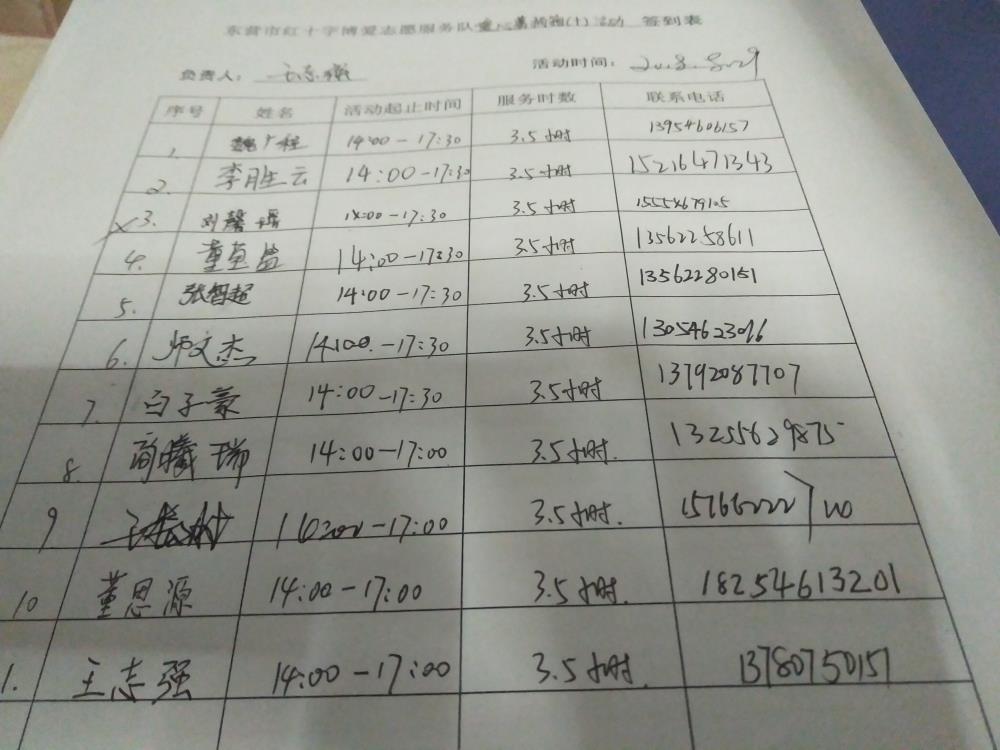 东营市红十字博爱志愿服务队 活动 签到表
负责人： 王志强 活动时间：
序号 姓名 活动起止时间 服务时数 联系电话
1. 魏广程 14:00-17:30 3.5小时 13954606157
2. 李胜云 14:00-17:30 3.5小时 15216471343
3. 刘馨 14:00-17:30 3.5小时
4. 董 14:00-17:30 3.5小时 13562258611
5. 张智超 14:00-17:30 3.5小时 13562280151
6. 师文杰 14:00-17:30 3.5小时
7. 白子豪 14:00-17:30 3.5小时 13792087707
8. 商曦瑞 14:00-17:00 3.5小时. 13255629875
9 -17:00 3.5小时.
10 董思源 14:00-17:00 3.5小时. 18254613201
1. 王志强 14:00-17:00 3.5小时. 13780750151